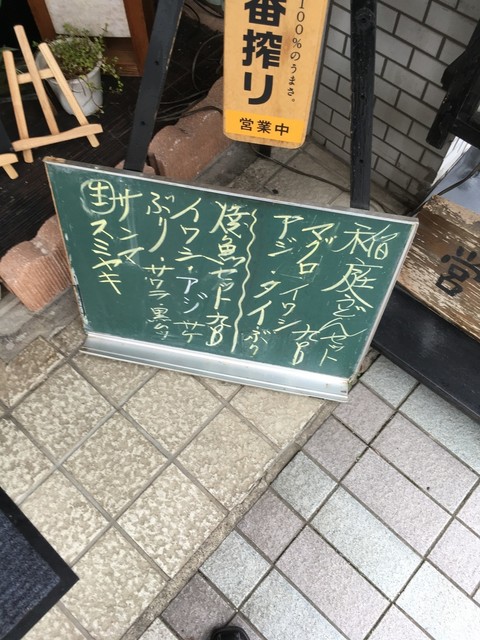 一番搾り
100%のうまさ。
営業中
稲庭うどんセット
マグロ、イワシ
アジ・タイ、ぶり
焼魚セット
イワシ・アジ サケ
ぶり・サワラ
サンマ
スミヤキ
営